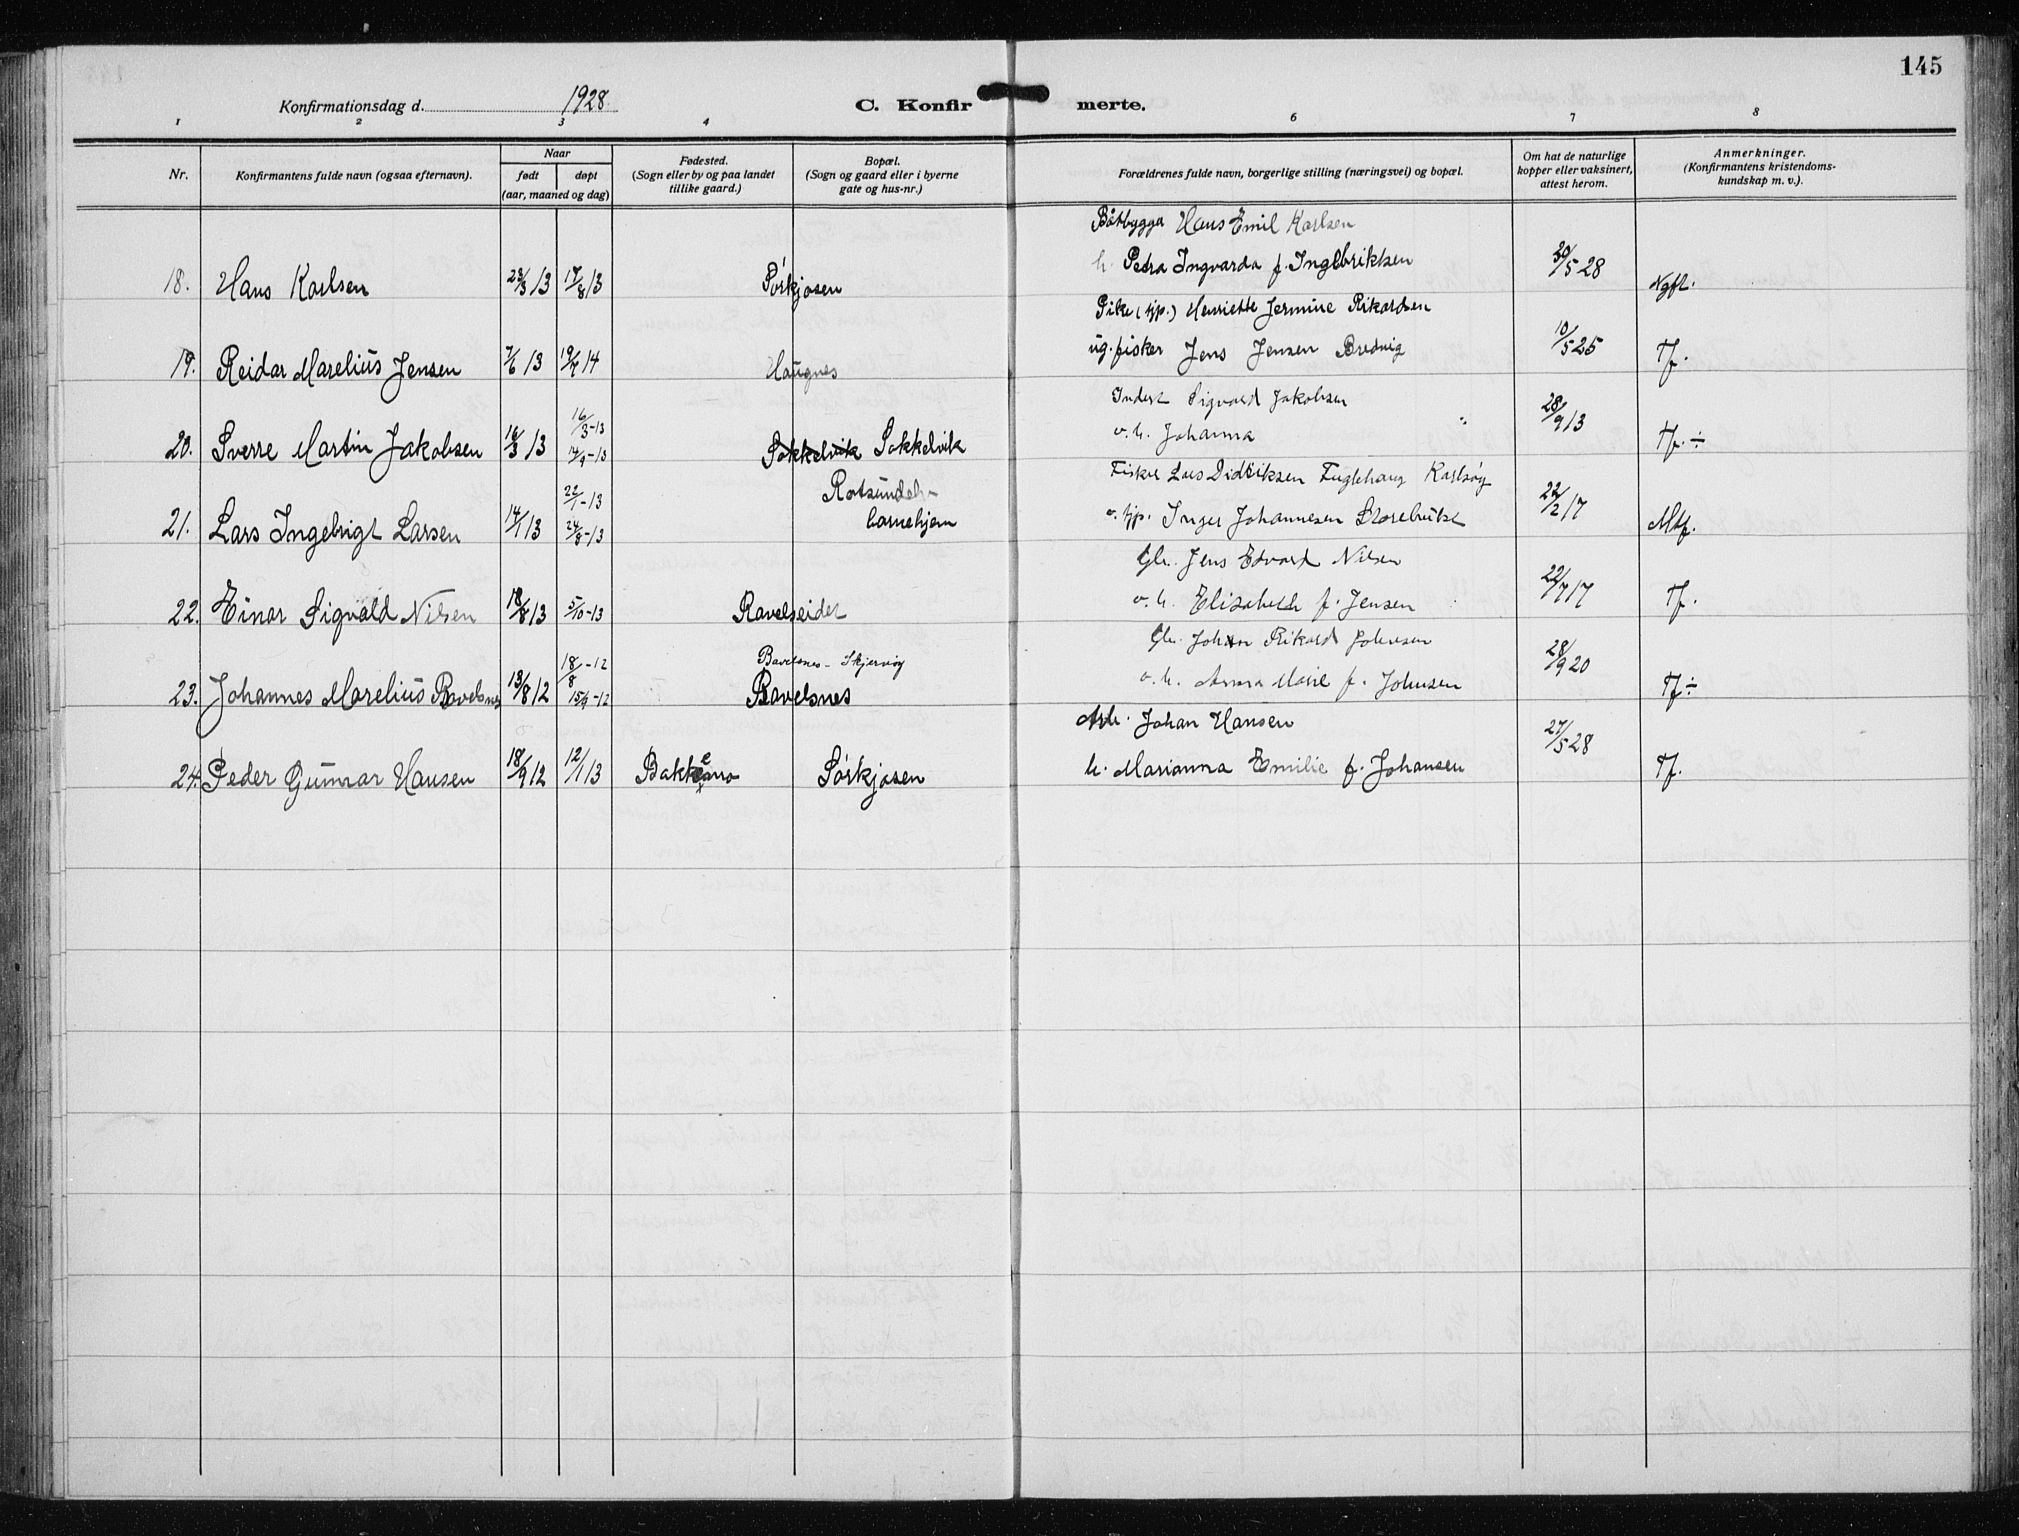 145
Konfirmationsdag d. 1928.
C. Konfirmerte.
1 2 3 4 6 7 8
Nr.
Konfirmantens fulde navn (ogsaa efternavn).
Naar
født
døpt
(aar, maaned og dag)
Fødested.
(Sogn eller by og paa landet
tillike gaard.)
Bopæl.
(Sogn og gaard eller i byerne
gate og hus-nr.)
Forældrenes fulde navn, borgerlige stilling (næringsvei) og bopæl.
Om hat de naturlige
kopper eller vaksinert,
attest herom.
Anmerkninger.
(Konfirmantens kristendoms-
kundskap m. v.).
Båtbygga Hans Emil Karlsen
18. Hans Karlsen 23/3 13 17/8 13 Sørkjosen h. Petra Ingvarda f. Ingebriktsen 20/5 28 Ngft.
Pike (tjp.) Henriette Jermine Rikardsen
19. Reidar Marelius Jensen 7/6 13 19/7 14 Haugnes ug. fisker Jens Jensen Bredvig 10/5 25 Tf.
Inderst Sigvard Jakobsen
16/3-13
20. Sverre Martin Jakobsen 16/3 13 14/9-13 Sokkelvik Sokkelvik o. h. Johanna 28/9 13 Tf. ÷
Fisker Lars Didriksen Fuglehaug Karlsøy
22/1-13 Rotsundelv
21. Lars Ingebrigt Larsen 14/1 13 24/8-13 barnehjem o. tjp. Inger Johannesen Storebukt 22/2 17 Mtf.
Gbr. Jens Edvart Nilsen
22. Einar Sigvald Nilsen 18/8 13 5/10-13 Ravelseidet o. h. Elisabeth f. Jensen 22/7 17 Tf.
Gbr. Johan Rikard Johnsen
18/8-12 Bavelsnes - Skjervøy
23. Johannes Marelius Bavelsnes 13/8 12 15/9-12 Bavelsnes o. h. Anna Marie f. Johnsen 28/9 20 Tf ÷
Arb. Johan Hansen
24. Peder Gunnar Hansen 18/9 12 12/1 13 Sørkjosen h. Marianna Emilie f. Johansen 27/5 28 Tf.